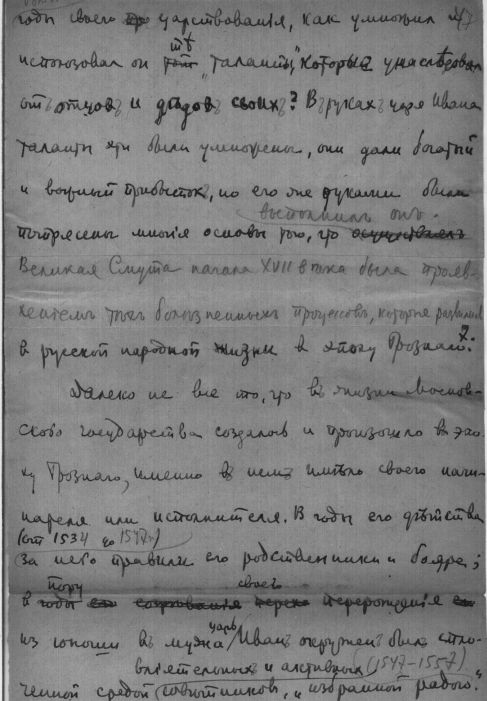 годы своего царствованія, какъ умножил и
использовал он тѣ "таланты", которые унаслѣдовал
отъ отцовъ и дѣдовъ своихъ? Въ руках царя Ивана
таланты эти были умножены, они дали богатый
и прибыток, но его же руками были
выполнилъ онъ.
потрясены многія основы того, что
Великая Смута начала XVII вѣка была
тѣхъ болѣзненныхъ процессовъ, которые развились
в русской народной жизни в эпоху Грознаго.
Далеко не все то, что въ жизни Москов-
скаго государства создалось и произошло в эпо-
ху Грознаго, именно в нем имѣло своего начи-
нателя или исполнителя. В годы его дѣтства
(от 1534 до 1547 г)
за него правили его родственники и бояре;
пору своего
в годы созрѣванія перерожденія
из юноши въ мужа царь Иванъ окруженъ былъ спло-
вліятельных и активных (1547-1557)
ченной средой совѣтников, "избранной радою."